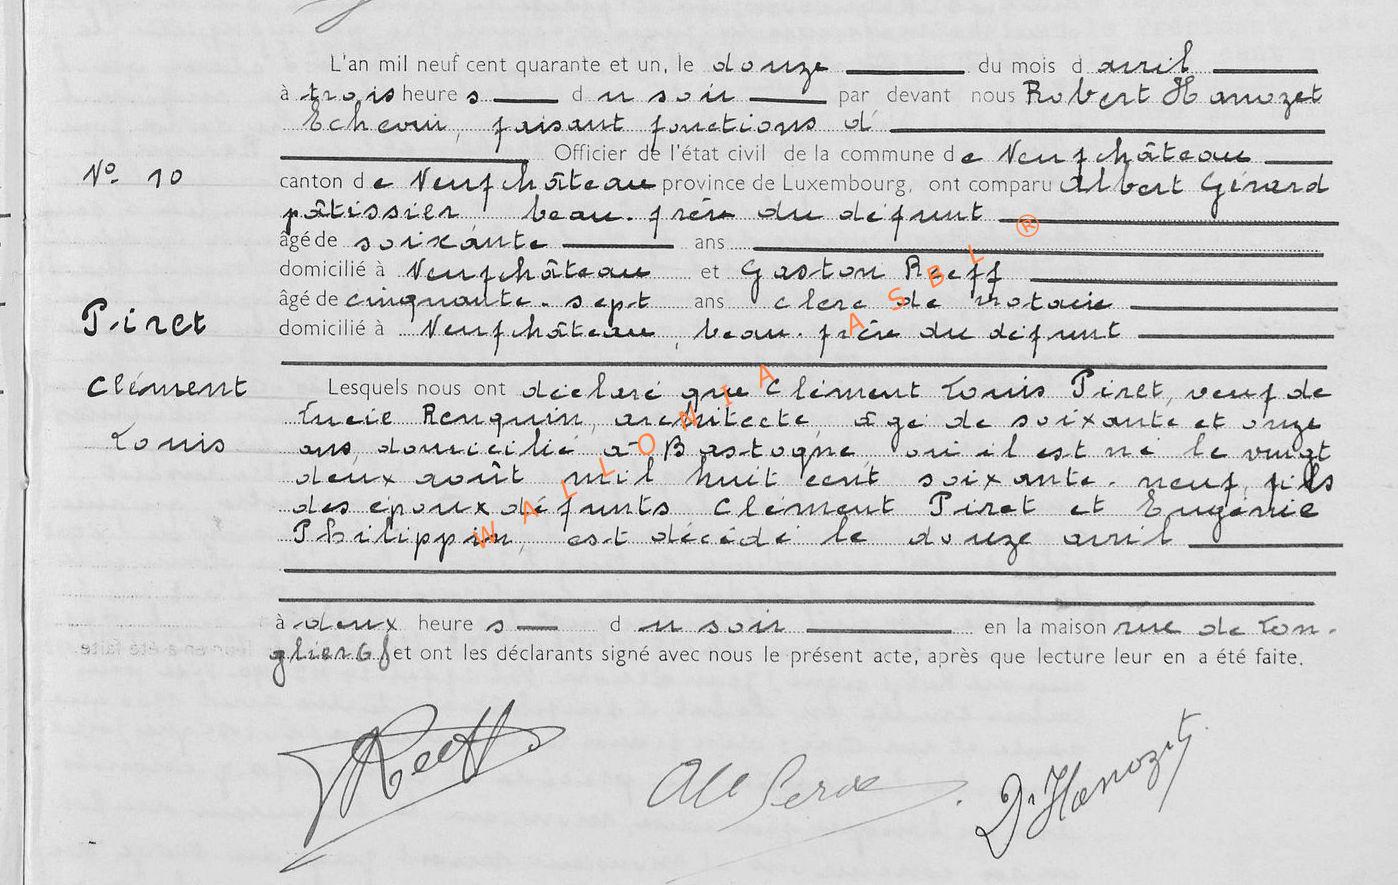 L'an mil neuf cent quarante et un, le douze du mois d avril
à trois heure s d u soir par devant nous Robert Hanozet
Echevin, faisant fonctions d'
Officier de l'état civil de la commune de Neufchâteau
N° 10
canton de Neufchâteau province de Luxembourg, ont comparu Albert Gérard
pâtissier beau-frère du défunt
âgé de soixante ans
domicilié à Neufchâteau et Gaston Reeff
âgé de cinquante-sept ans clerc de notaire
Piret
domicilié à Neufchâteau, beau-frère du défunt
Clément
Lesquels nous ont déclaré que Clément Louis Piret, veuf de
Lucie Renquin, architecte, âgé de soixante et onze
Louis
ans, domicilié à Bastogne, où il est né le vingt
deux août mil huit cent soixante-neuf, fils
des époux défunts Clément Piret et Eugénie
Philippin, est décédé le douze avril
à deux heure s d u soir en la maison rue de Lon-
glier 68 et ont les déclarants signé avec nous le présent acte, après que lecture leur en a été faite.
Reeff
Dr Hanozet
WALLONIA ASBL ®